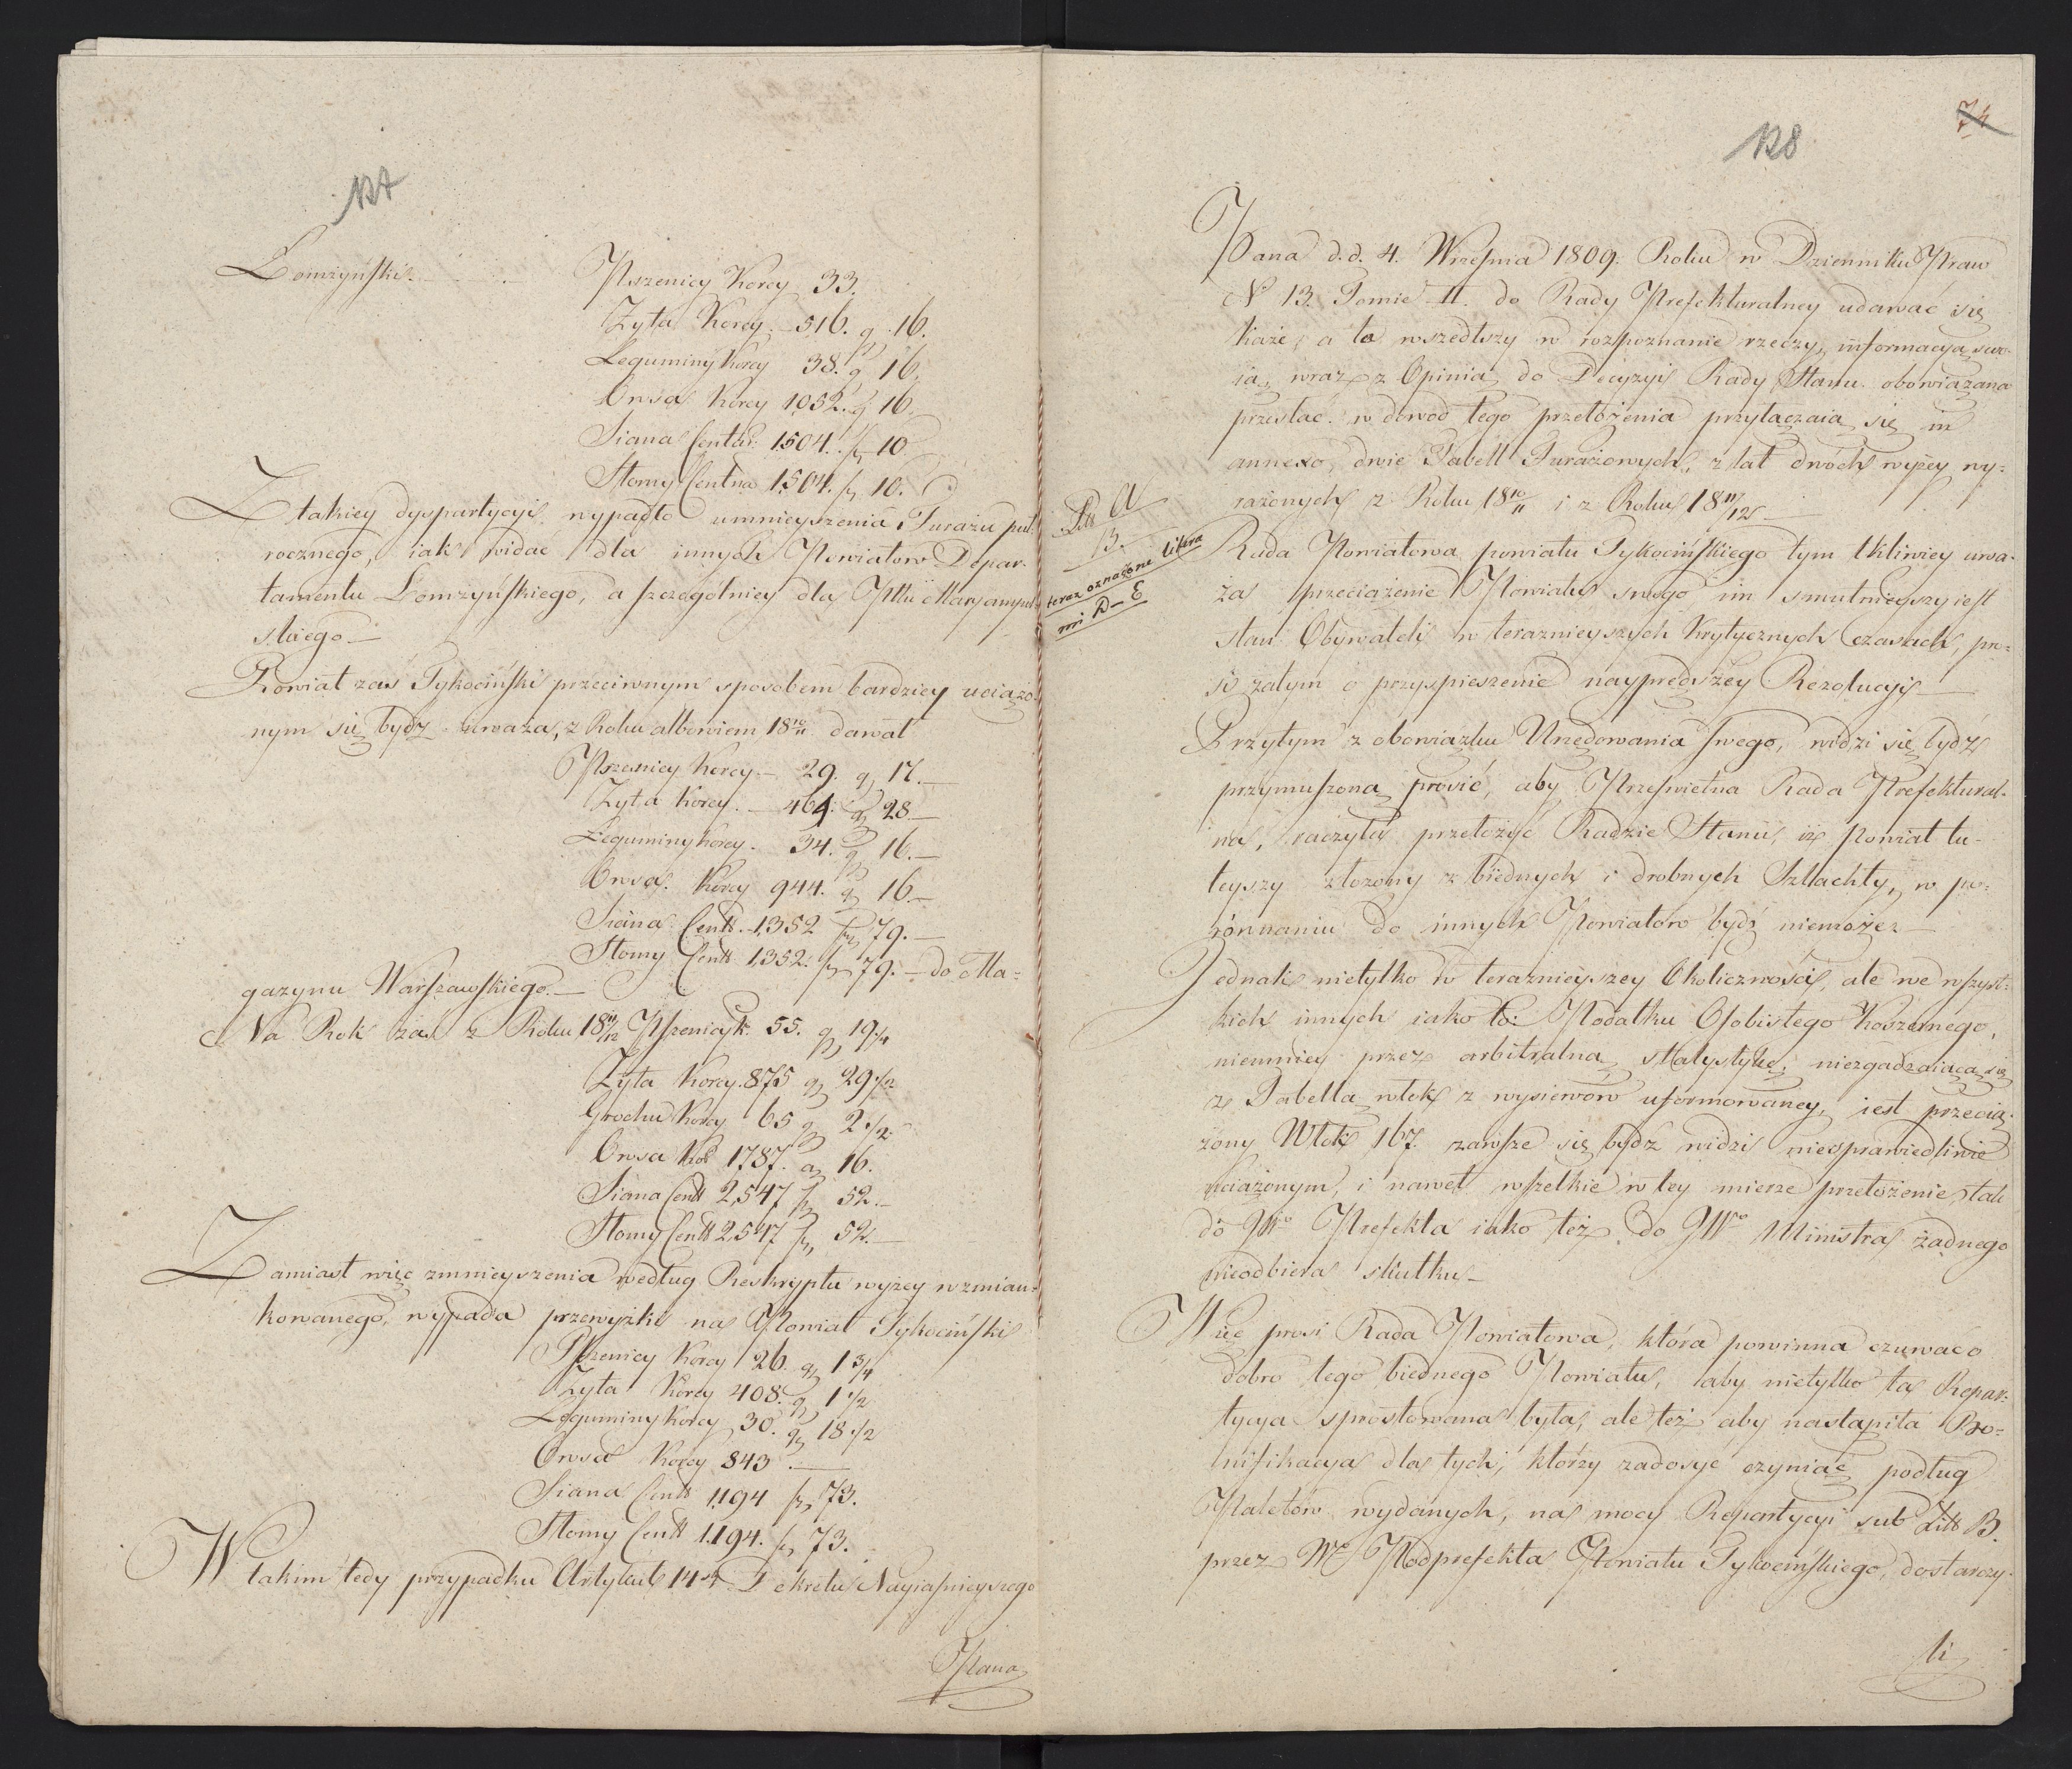 127
Łomżyński.
Pszenicy Korcy 33.
Żyta Korcy. 516. g. 16.
Leguminy Korcy 38. g 16.
Owsa Korcy 1052. g 16.
Siana Centn: 1504. f 10
Słomy Centna 1504. f 10.
Z takiey dyspartycyi wypadło umnieyszenia Furażu pul
rocznego, iak widać dla innych Powiatow Depar-
tamentu Łomżyńskiego, a szczególniey dla Pttu Maryampol
skiego —
Powiat zaś Tykociński przeciwnym sposobem bardziey uciążo-
nym się bydź uważa, z Roku albowiem 18 10/11 dawał
Pszenicy Korcy — 29. g 17. —
Żyta Korcy. — 464. g 28 —
Leguminy Korcy. 34. g 16. —
Owsa. Korcy 944. g 16. —
Siana Centt. 1352 f 79. —
Słomy Centt 1352. f 79. — do Ma=
gazynu Warszawskiego. —
Na Rok zaś z Roku 18 11/12 Pszenicy k. 55. g 19¼
Żyta Korcy. 875 g 29½
Grochu Korcy 65 g 2½
Owsa Kor 1787. g 16.
Siana Centt 2,547 f 52. —
Słomy Centt 2,547 f 52. —
Zamiast więc zmnieyszenia według Reskryptu wyżey wzmian=
kowanego, wypada przewyżki na Powiat Tykociński
Pszenicy Korcy 26. g 1¾
Żyta Korcy 408. g 1½
Leguminy Korcy 30. g 18½
Owsa Korcy 843. —
Siana Centt 1,194 f 73.
Słomy Centt 1.194. f 73.
W takim tedy przypadku Artykuł 14ty Dekretu Nayiaśnieyszego
Pana
128
74
Pana d.d. 4. Wrzesnia 1809. Roku w Dzienniku Praw
No 13. Tomie II. do Rady Prefekturalney udawać się
każe, a ta wszedłszy w rozpoznanie rzeczy, informacyą swo-
ią, wraz z Opinią do Decyzyi Rady Stanu obowiązana
przesłać. w dowod tego przełożenia przyłączaią się in
annexo, dwie Tabell Furażowych, z lat dwóch wyżey wy=
rażonych z Roku 18 10/11 i z Roku 18 11/12 —
Litt A
B.
teraz oznaczone litera
mi D — E
Rada Powiatowa powiatu Tykocińskiego tym tkliwiey uwa-
ża przeciążenie Powiatu swego im smutnieyszy iest
stan Obywateli w teraznieyszych krytycznych czasach, pro=
si zatym o przyspieszenie nayprędszey Rezolucyi —
Przytym z obowiązku Urzędowania swego, widzi się bydź
przymuszoną prosić, aby Prześwietna Rada Prefektural-
na, raczyła przełożyć Radzie Stanu, iż Powiat tu-
teyszy złożony z biednych i drobnych Szlachty, w po=
równaniu do innych Powiatow bydź niemoże. —
Jednak nietylko w teraznieyszey Okoliczności, ale we wszyst=
kich innych iako to: Podatku Osobistego Koszernego,
niemniey przez arbitralną statystykę, niezgadzaiącą się
z Tabellą włók z wysiewow uformowaney, iest przecią-
żony Włók 167. zawsze się bydź widzi niesprawiedliwie
uciążonym, i nawet wszelkie w tey mierze przełożenie, tak
do JWo Prefekta iako też do JWo Ministra żadnego
nieodbiera skutku —
Więc prosi Rada Powiatowa, która powinna czuwać o
dobro tego biednego Powiatu, aby nietylko ta Repar-
tycya sprostowana była, ale też aby nastąpiła Bo=
nifikacya dla tych, którzy zadosyć czyniąc podług
Paletów wydanych, na mocy Repartycyi sub Litt B.
przez Wo Podprefekta Powiatu Tykocińskiego, dostarczy-
li